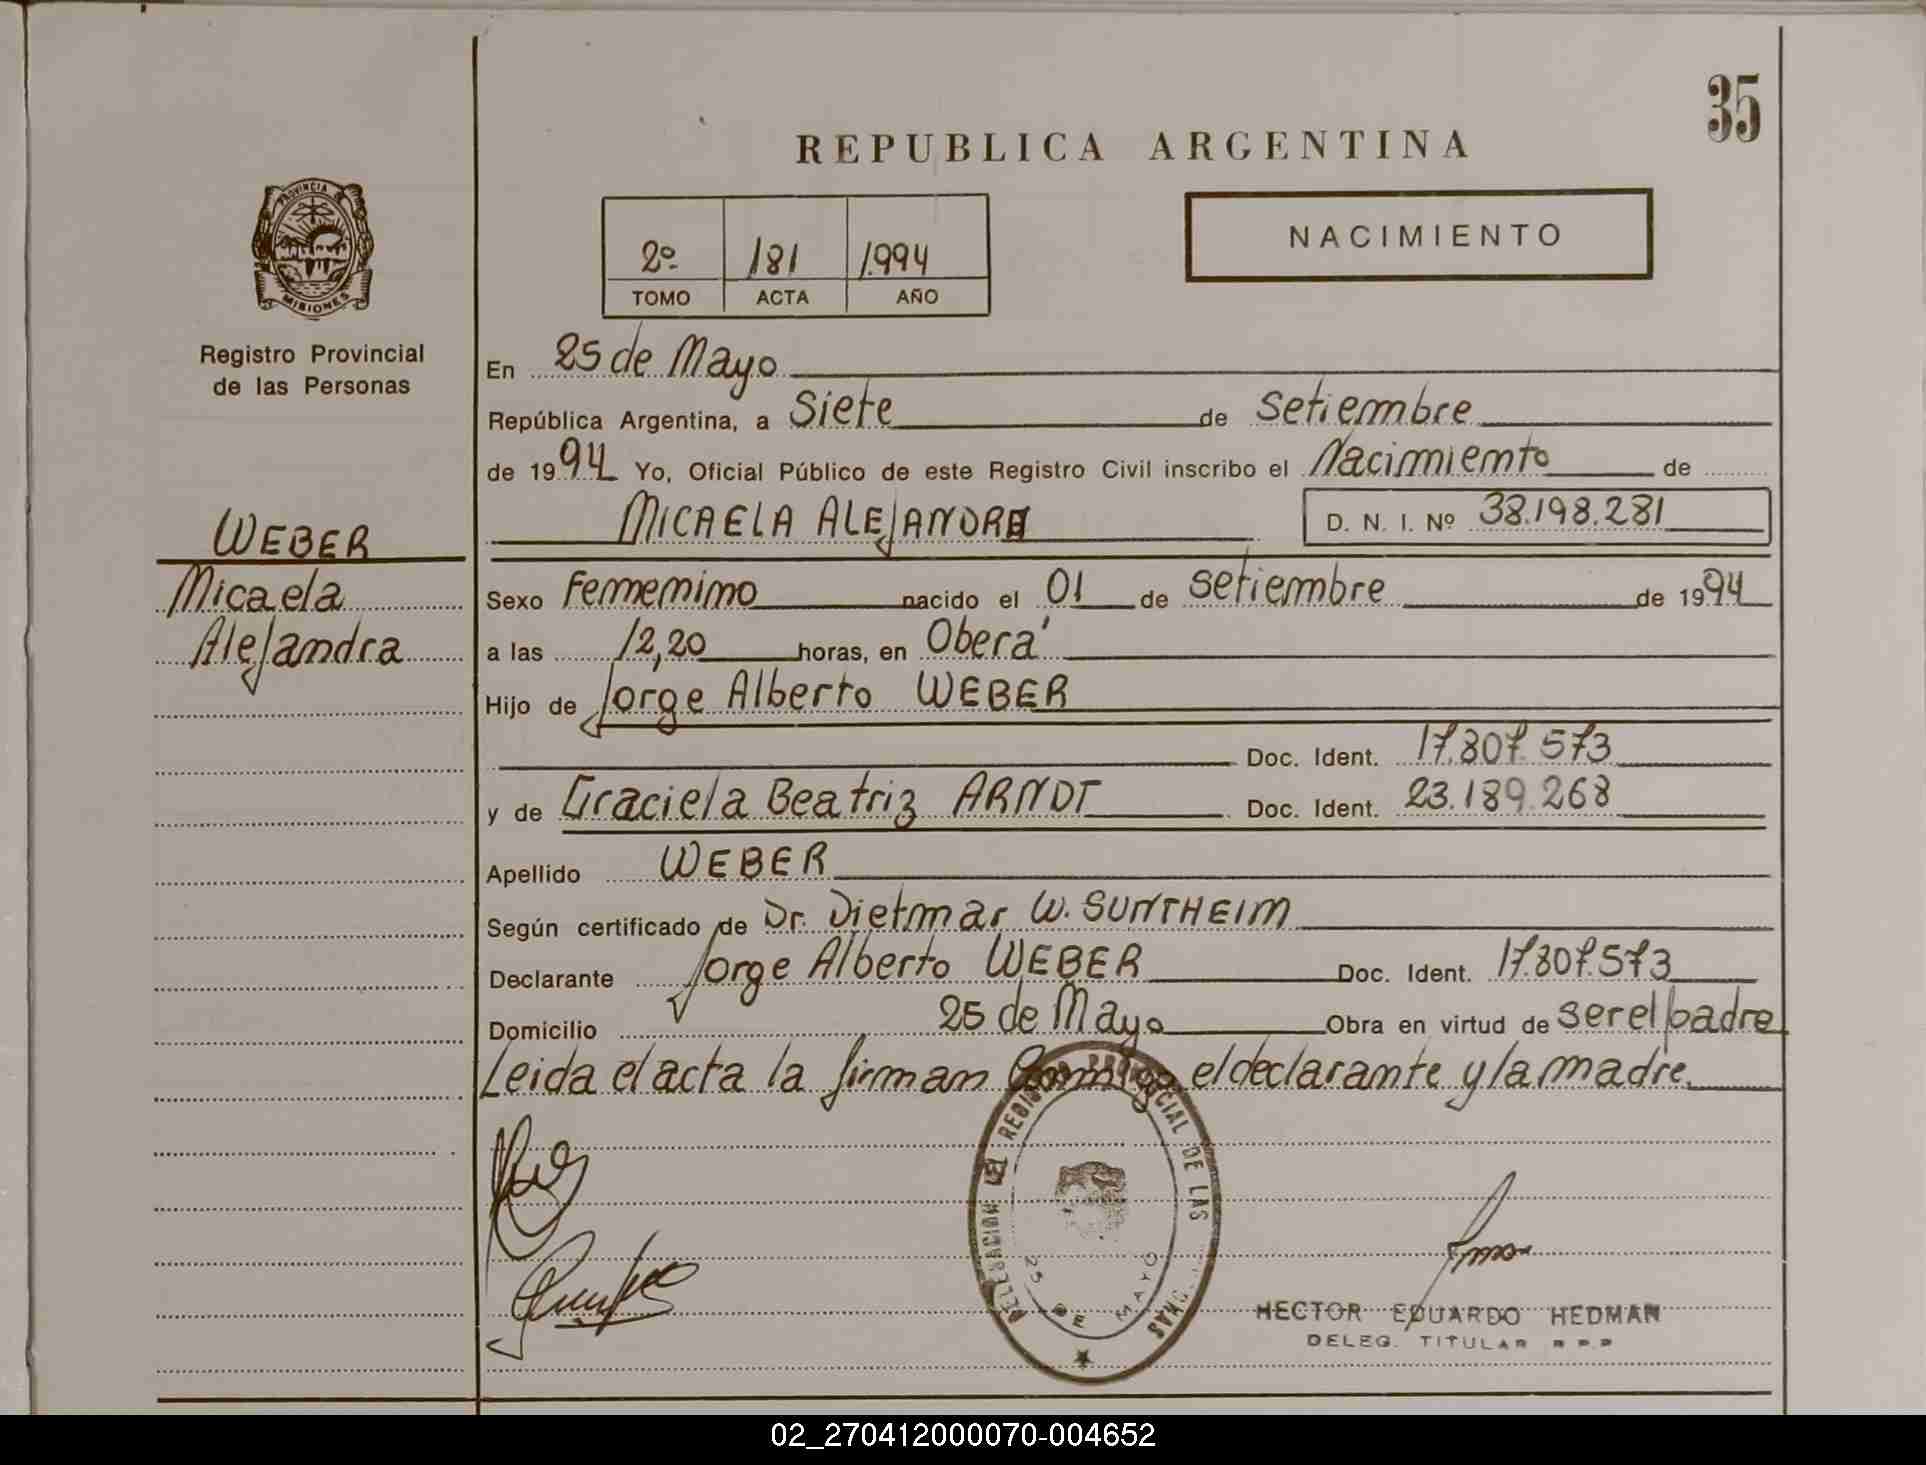 35
REPUBLICA ARGENTINA
PROVINCIA
MISIONES
Registro Provincial
de las Personas
2º 181 1.994
TOMO ACTA AÑO
NACIMIENTO
En 25 de Mayo
República Argentina, a Siete de Setiembre
de 1994 Yo, Oficial Público de este Registro Civil inscribo el Nacimiento de
MICAELA ALEJANDRA D. N. I. Nº 38.198.281
WEBER
Micaela
Alejandra
Sexo Femenino nacido el 01 de Setiembre de 1994
a las 12,20 horas, en Oberá
Hijo de Jorge Alberto WEBER
Doc. Ident. 17.807.573
y de Graciela Beatriz ARNDT Doc. Ident. 23.189.268
Apellido WEBER
Según certificado de Dr. Dietmar W. SUNTHEIM
Declarante Jorge Alberto WEBER Doc. Ident. 17.807.573
Domicilio 25 de Mayo Obra en virtud de ser el padre
Leida el acta la firman Conmigo el declarante y la madre.
DELEGACION DEL REGISTRO PROVINCIAL DE LAS
25 DE MAYO
HECTOR EDUARDO HEDMAN
DELEG. TITULAR
02_270412000070-004652